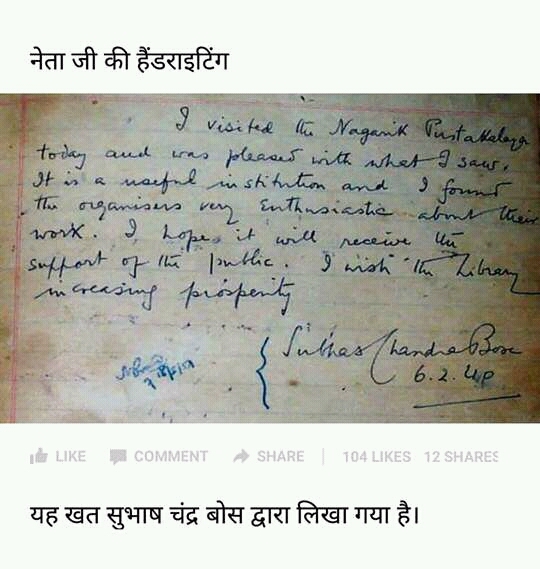 नेता जी की हैंडराइटिंग
I visited the Nagarik Pustakalaya
today and was pleased with what I saw.
It is a useful institution and I found
the organisers very enthusiastic about their
work. I hope it will receive the
support of the public. I wish the Library
increasing prosperity
Subhas Chandra Bose
6.2.40
LIKE COMMENT SHARE 104 LIKES 12 SHARES
यह खत सुभाष चंद्र बोस द्वारा लिखा गया है।